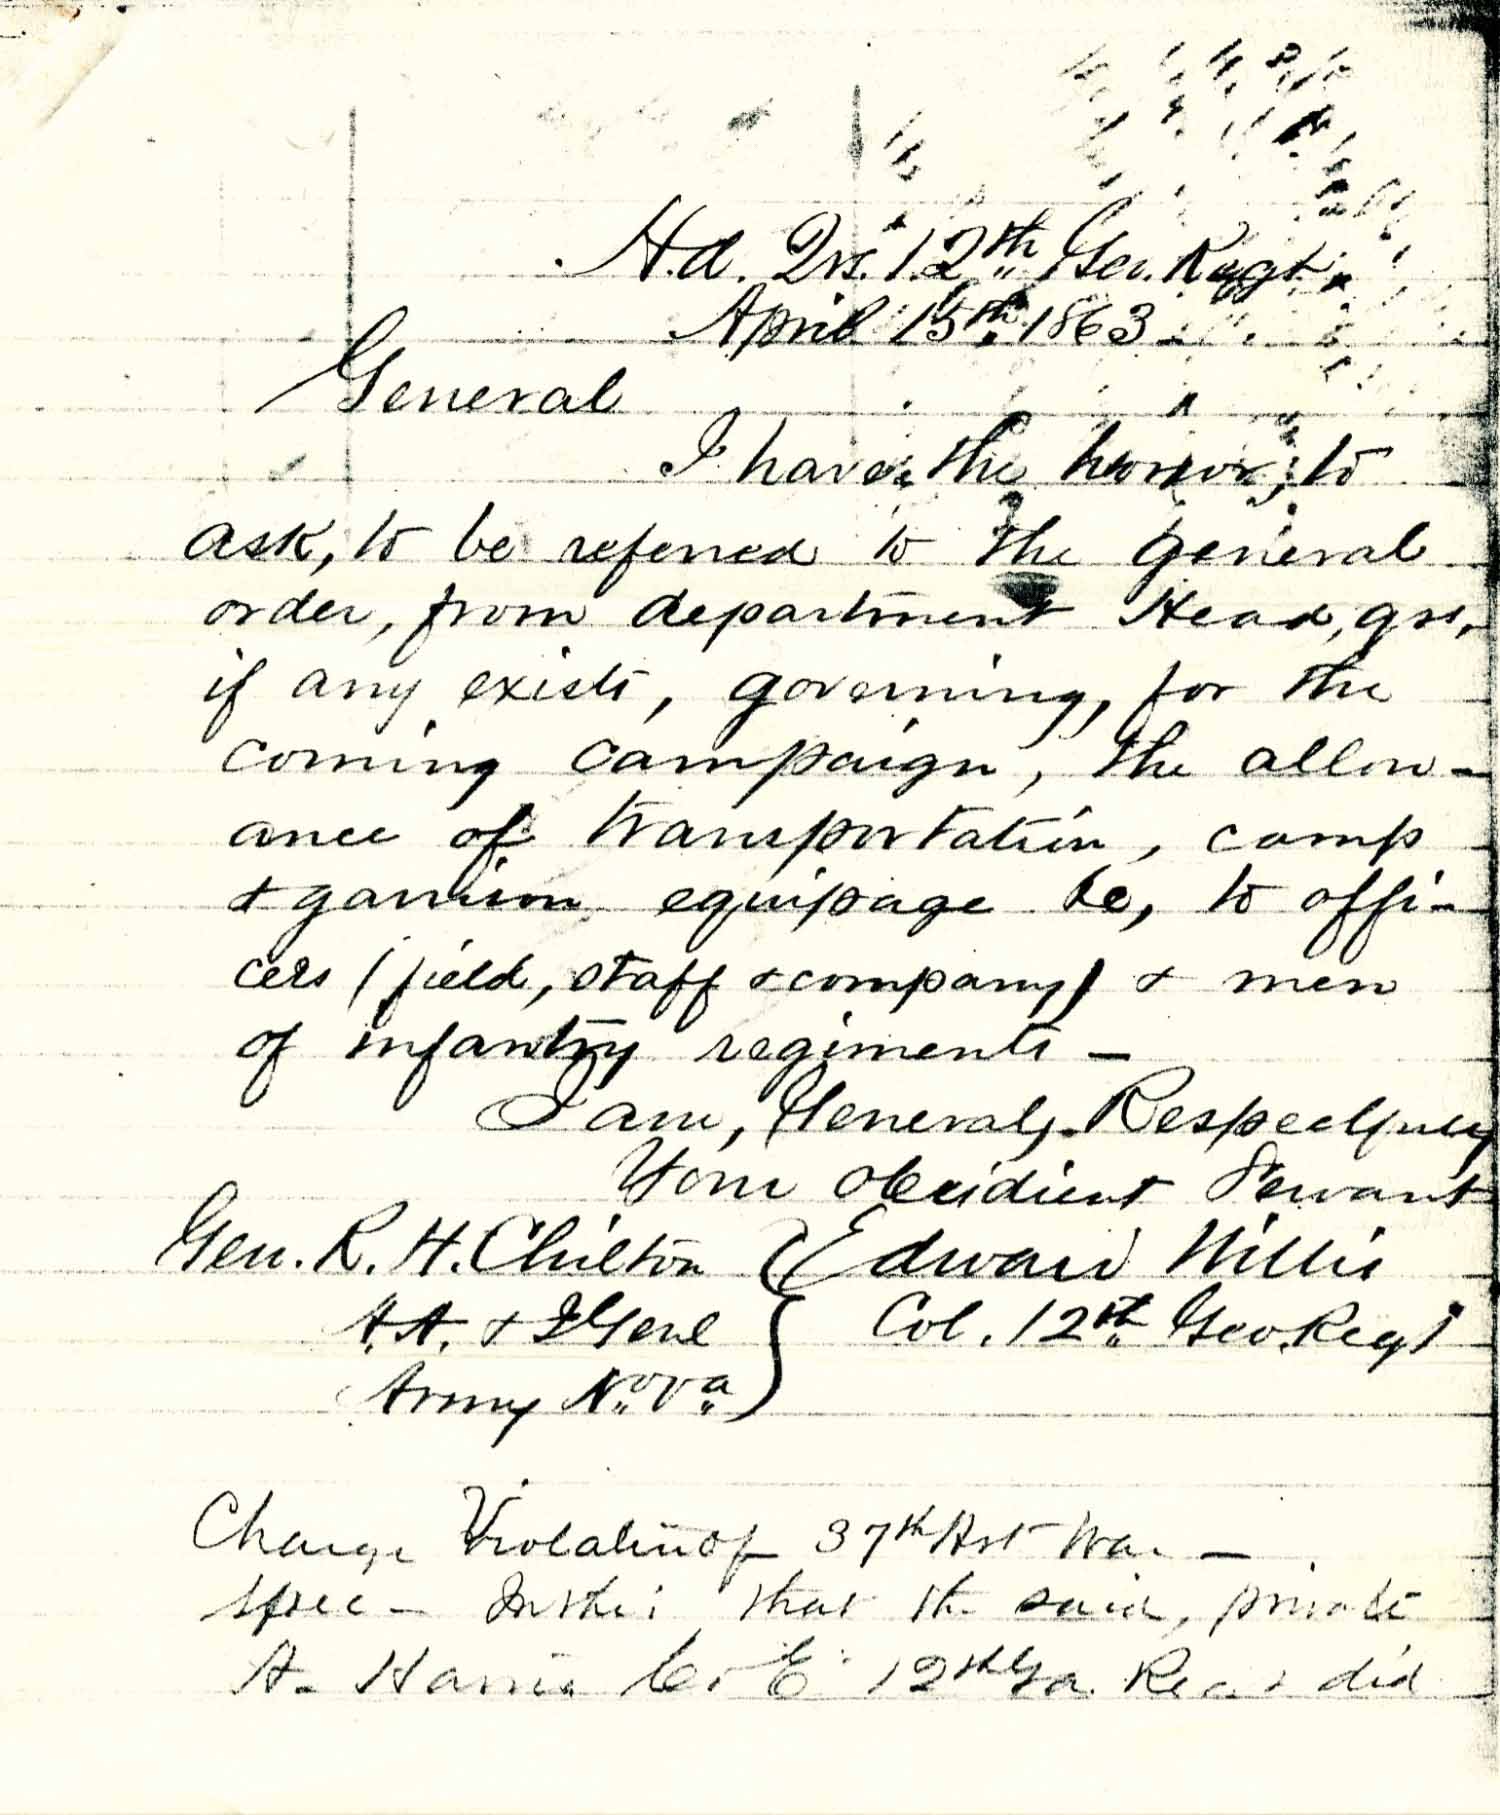 Hd. Qrs. 12th Geo. Regt
April 15th 1863
General
I have, the honor, to
ask, to be referred to the general
order, from department Head, qrs,
if any exists, governing, for the
coming campaign, the allow-
ance of transportation, camp
& garrison equipage &c, to offi-
cers (field, staff & company) & men
of infantry regiments —
I am, General, Respectfully
Your obeidient Servant
Gen. R. H. Chilton } Edward Willis
A.A. & I Genl } Col. 12th Geo. Regt
Army No. Va }
Charge Violation of 37th Art War —
Spec — In this that the said, private
A. Harris Co E 12th Ga. Regt did